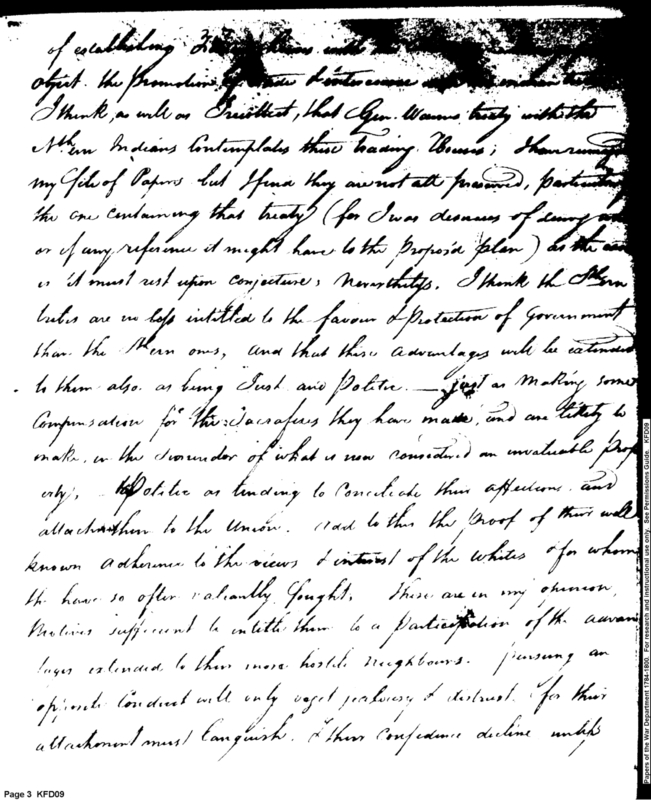 of establishing
object. the promotion of trade & intercourse with the indian
I think, as well as I recollect, that Gen. Waynes treaty with the
Nthern Indians Contemplates these trading Houses; I have
my file of Papers but I find they are not all preserved, particularly
the one containing that treaty (for I was desirous of
or if any reference it might have to the propos'd plan) as the case
is it must rest upon conjecture; nevertheless. I think the Sthern
tribes are no less intitled to the favour & protection of Government
than the Nthern ones, and that these advantages will be extended
to them also as being Just and Politic. — just as making some
Compensation for the Sacrafices they have made, and are likely to
make, in the surrender of what is now considered an invaluable prop
erty, Politic as tending to conciliate their affections and
attach them to the Union. add to this the proof of their well
known adherence to the views & interest of the whites & for whom
the have so often valiantly fought. These are in my opinion
Motives sufficient to intitle them to a Participation of the advan
tages extended to their more hostile neighbours. pursuing an
opposite Conduct will only beget jealousy & distrust. for their
attachment must languish. & their confidence decline unless
Page 3 KFD09
Papers of the War Department 1784-1800. For research and instructional use only. See Permissions Guide. KFD09